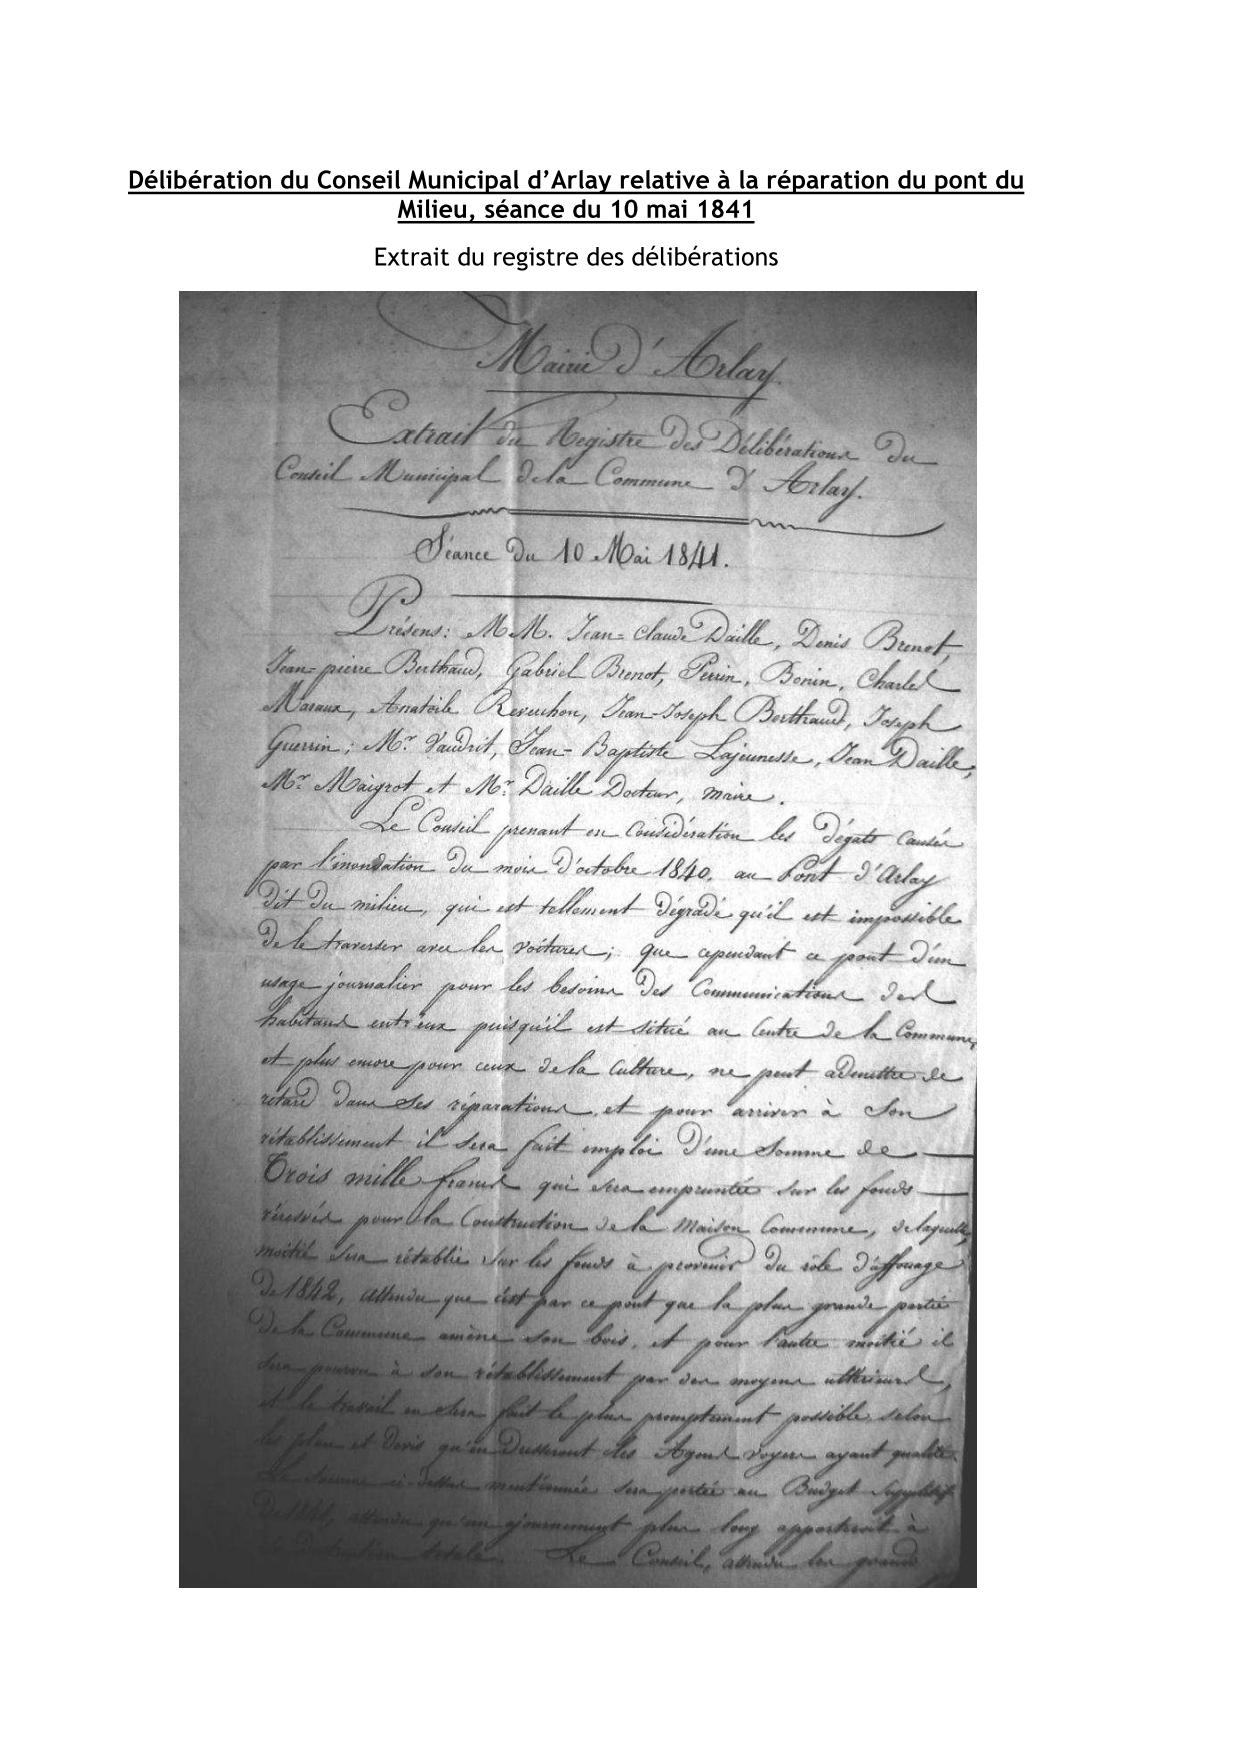 Délibération du Conseil Municipal d’Arlay relative à la réparation du pont du
Milieu, séance du 10 mai 1841
Extrait du registre des délibérations
Mairie d'Arlay.
Extrait du Registre des Délibérations du
Conseil Municipal de la Commune d'Arlay.
Séance du 10 Mai 1841.
Présens: MM. Jean-Claude Daille, Denis Brenot,
Jean-pierre Berthaud, Gabriel Brenot, Perrin, Bonin, Charles
Maraux, Anatoile Revuchon, Jean-Joseph Berthaud, Joseph
Guerrin; Mr. Vaudrit, Jean-Baptiste Lajeunesse, Jean Daille,
Mr. Maigrot et Mr. Daille Docteur, maire.
Le Conseil prenant en considération les dégats causés
par l'inondation du mois d'octobre 1840, au Pont d'Arlay
dit du milieu, qui est tellement dégradé qu'il est impossible
de le traverser avec les voitures; que cependant ce pont d'un
usage journalier pour les besoins des Communications des
habitans entr'eux puisqu'il est situé au Centre de la Commune,
et plus encore pour ceux de la Culture, ne peut admettre de
retard dans ses réparations, et pour arriver à son
rétablissement il sera fait emploi d'une somme de
Trois mille francs qui sera empruntée sur les fonds
réservés pour la Construction de la maison Commune, de laquelle
moitié sera rétablie sur les fonds à provenir du rôle d'affouage
de 1842, attendu que c'est par ce pont que la plus grande partie
de la Commune amène son bois, et pour l'autre moitié il
sera pourvu à son rétablissement par des moyens ultérieurs,
et le travail en sera fait le plus promptement possible selon
les plan et devis qu'en dresseront les Agens voyers ayant qualité.
La somme ci-dessus mentionnée sera portée au Budget supplétif
de 1841, attendu qu'un ajournement plus long apporterait à
destruction totale. Le Conseil, attendu les grands